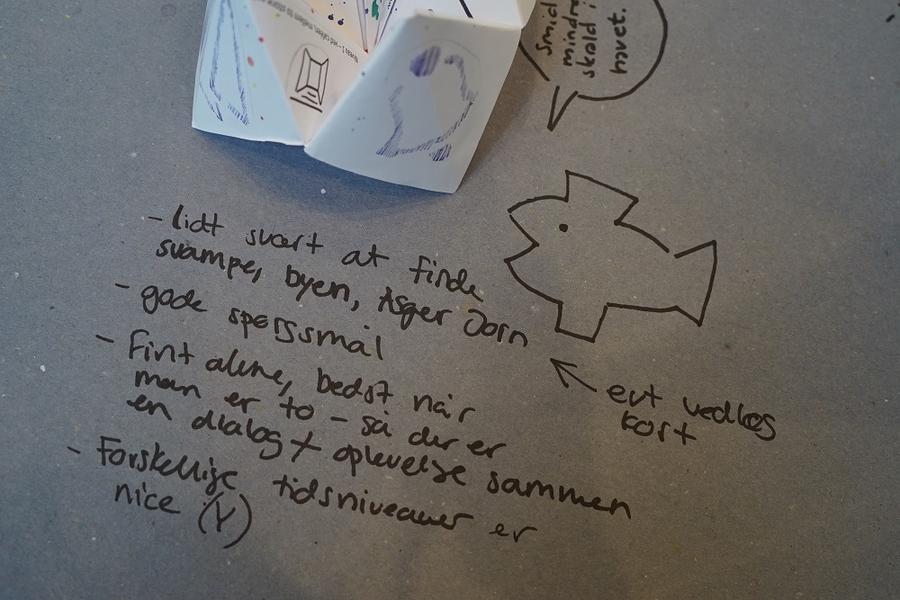 Smid
mindre
skald i
havet.
- lidt svært at finde
svampe, byen, Asger Jorn
- gode spørgsmål
- Fint alene, bedst når
man er to - så der er
en dialog + oplevelse sammen
- Forskellige tidsniveauer er
nice (Y)
evt vedlæg
kort